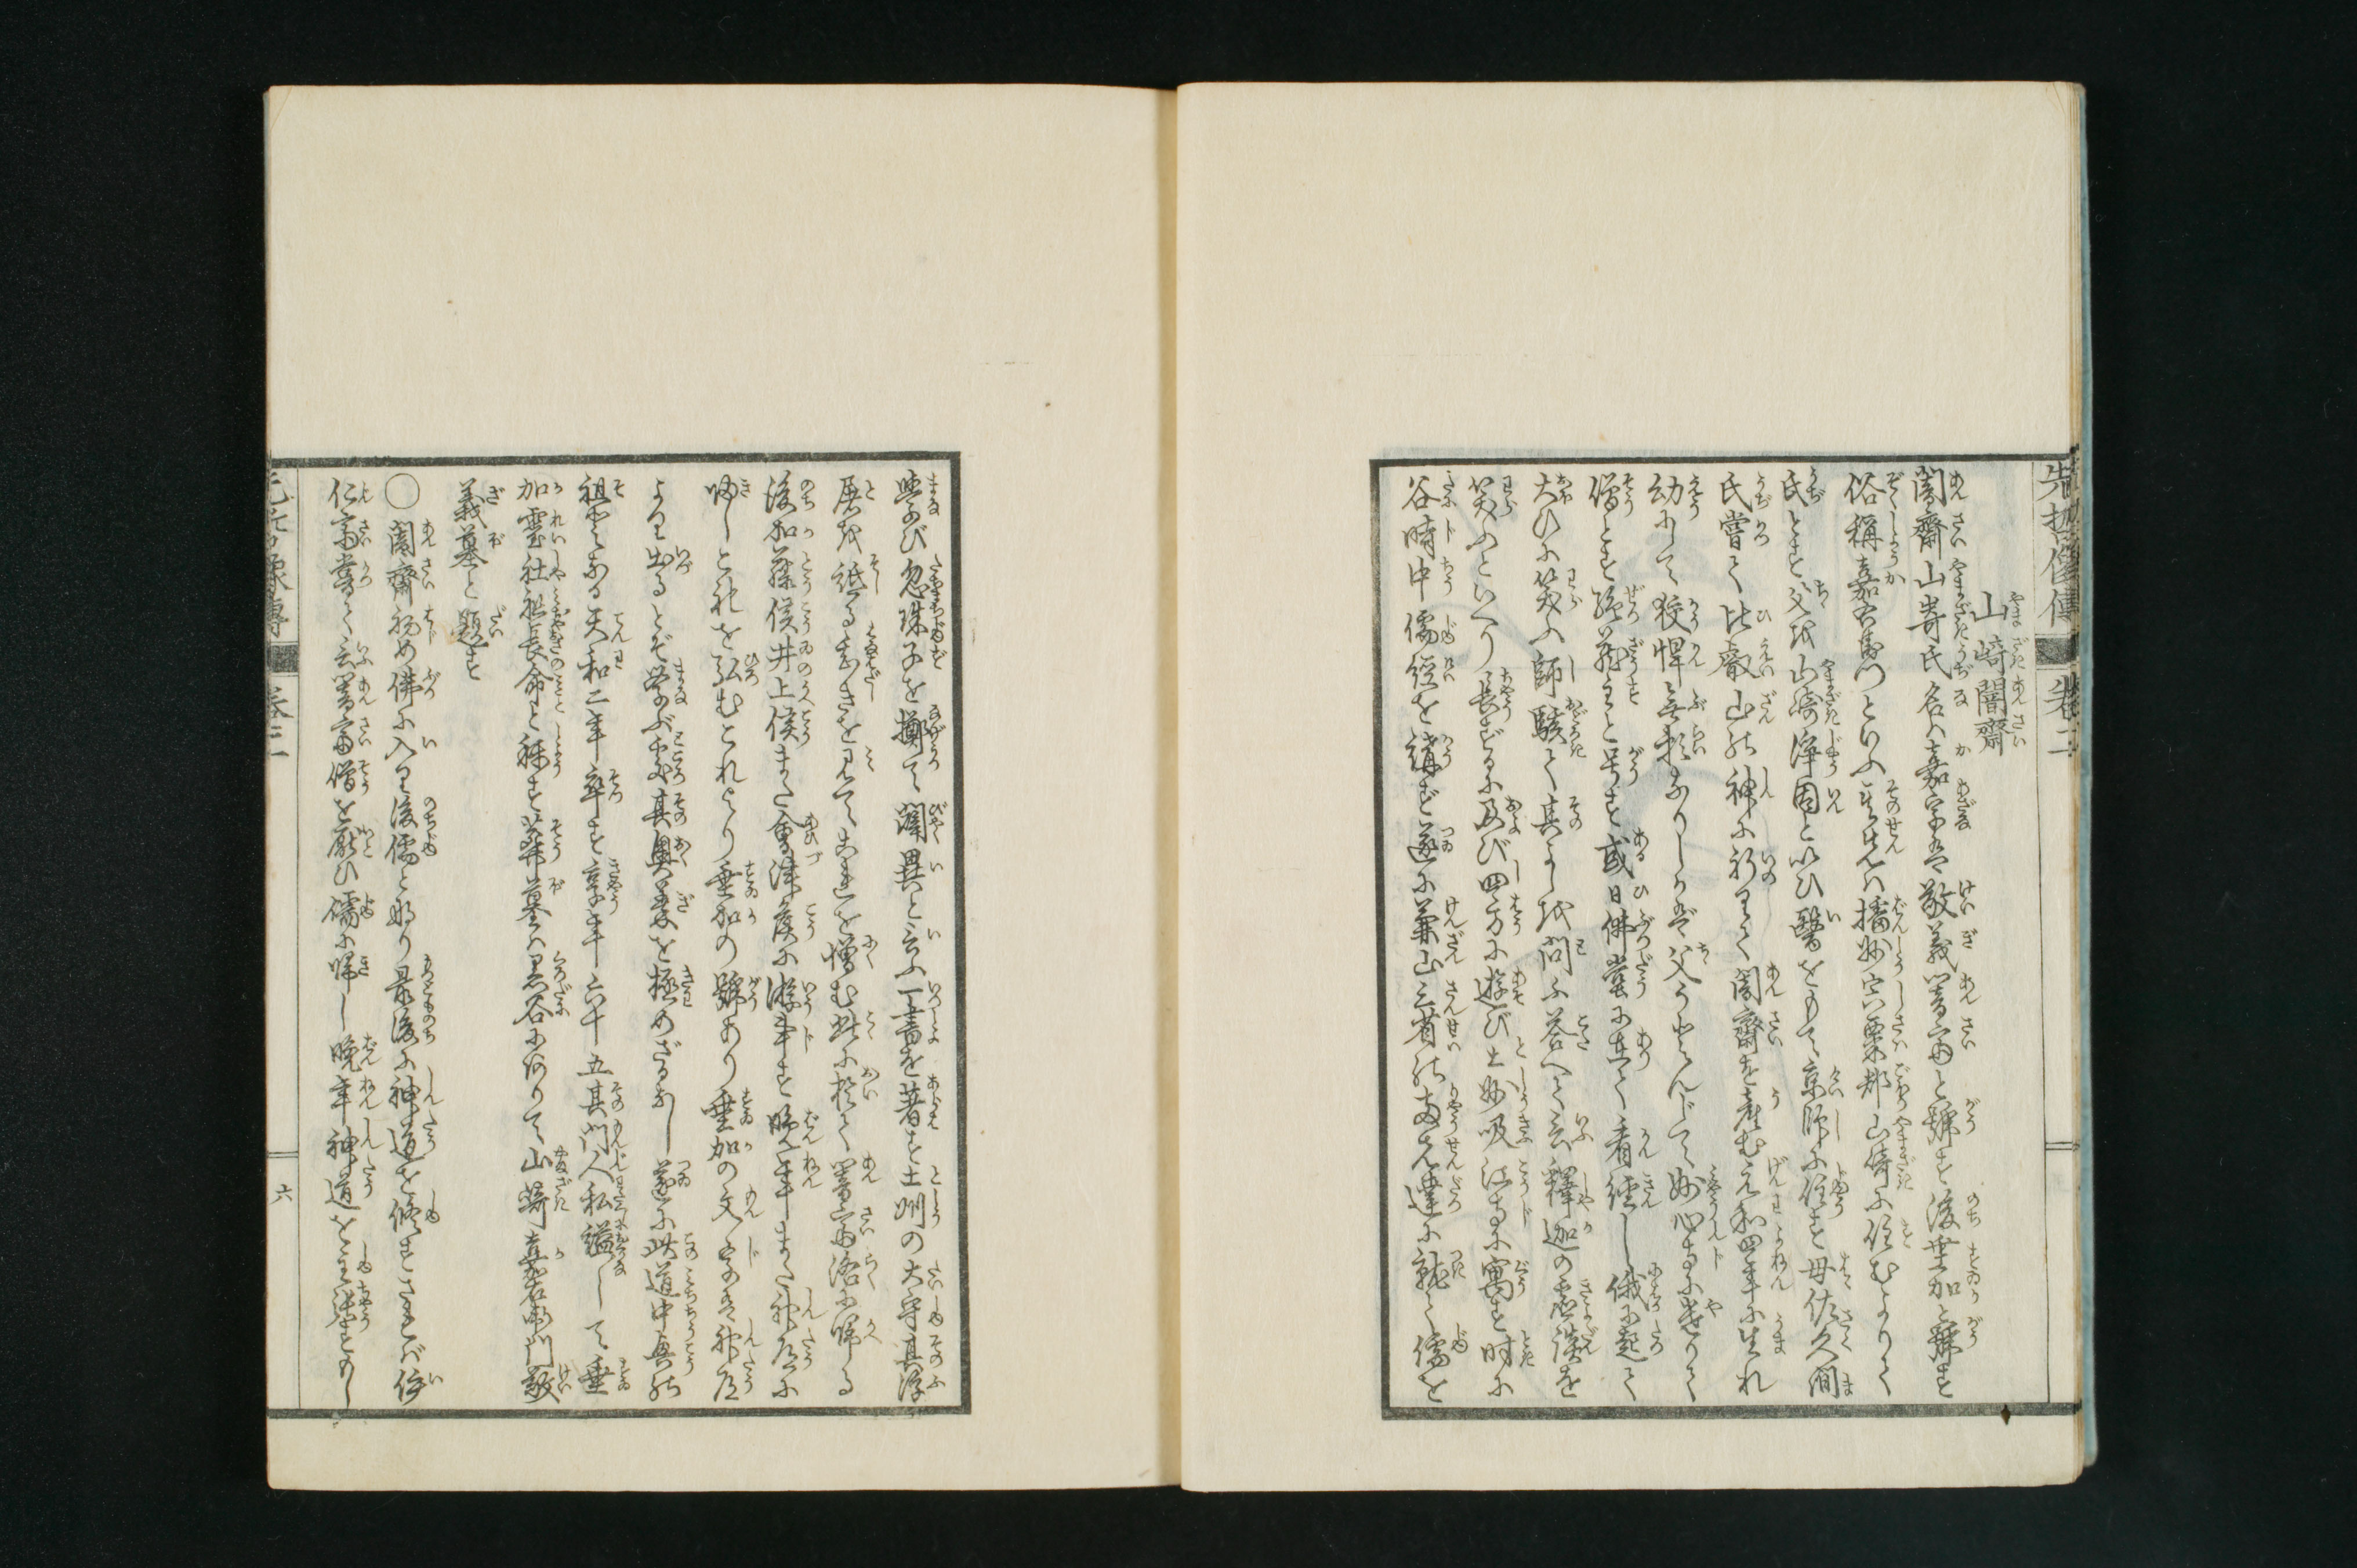 先哲像傳 卷二
山崎闇齋
闇齋山嵜氏名ハ嘉字ハ敬義闇齋と號す後垂加と號す
俗稱嘉右衛門といふ其先ハ播州宍粟郡山崎に住むよりて
氏とす父を山崎淨因といひ醫をもて京師に住す母佐久間
氏嘗て比叡山の神に祈りて闇齋を産む元和四年に生れ
幼にして狡悍無頼なりしかば父うとんじて妙心寺に遣りて
僧とす絶藏主と号す或日佛堂に在て看經し俄に起て
大ひに笑ふ師駭て其よしを問ふ答へて云釋迦の虚談を
笑ふといへり長ずるに及び四方に遊び土州吸江寺に寓す時に
谷時中儒經を講ず遂に兼山三省の両先達に就て儒を
學び忽珠子を擲て闢異と云ふ一書を著す土州の大守其浮
屠を祗る甚きを見てこれを憎む於て闇齋洛に歸る
後加藤侯井上侯また會津侯に游事す晩年また神道に
帰しこれを弘むこれより垂加の號あり垂加の文字は神道
より出るとぞ學ぶ處其奥義を極めざるなし遂に此道中興の
祖となる天和二年卒す享年六十五其門人私謚して垂
加靈社祖長命と稱す葬墓ハ黒谷に有りて山嵜嘉右衛門敬
義墓と題す
〇闇齋初め佛に入り後儒と成り最後に神道を修すされば伊
仁齋嘗て云闇齋僧を厭ひ儒に歸し晩年神道を主張すもし
先哲像傳 卷二 六